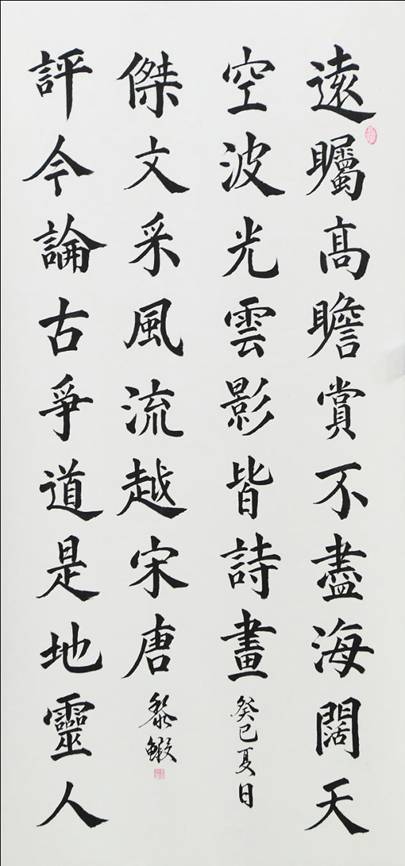 遠矚髙瞻賞不盡海闊天
空波光雲影皆詩畫
癸巳夏日
評今論古爭道是地靈人
傑文采風流越宋唐
黎鰕